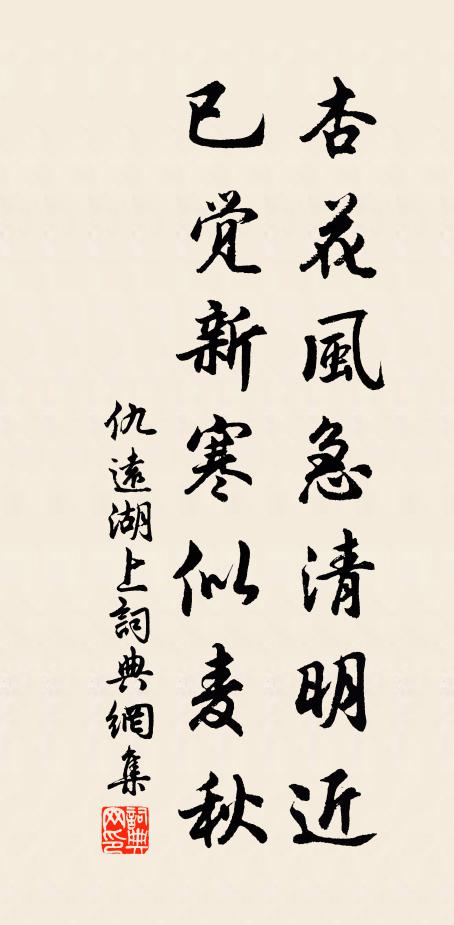 杏花風急清明近
已觉新寒似麦秋
仇遠湖上詞典網集
詞典网印